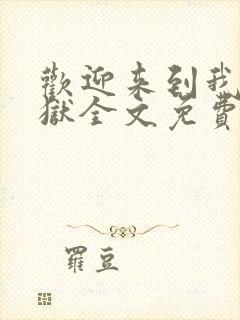 歡迎来到我
獄全文免費
羅豆